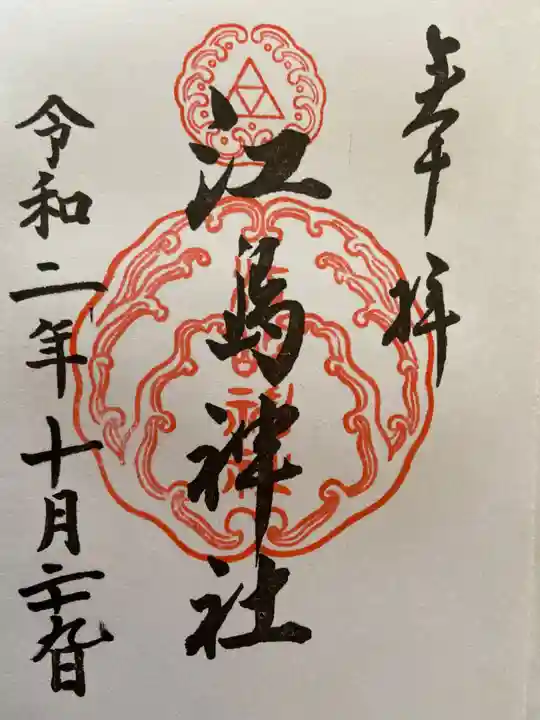 奉拝
江島神社
令和二年十月二十九日